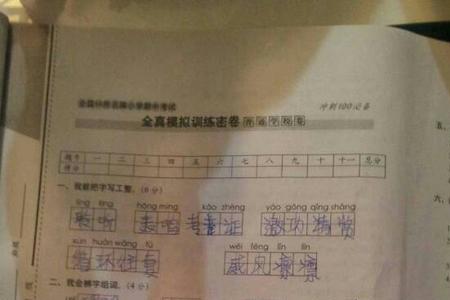 全国什邡名牌小学期中考试 冲刺100必备
全真模拟训练密卷
题号 一 二 三 四 五 六 七 八 九 十 十一 总分
得分
一、我能把字写工整。(8分)
líng tīng hōng míng kǎo zhèng yāo gōng qǐng shǎng
聆听 考证 邀功请赏
xún huán wǎng fù wēi fēng lǐn lǐn
循环往复 威风凛凛
二、我会辨字组词。(4分)
五、
六、